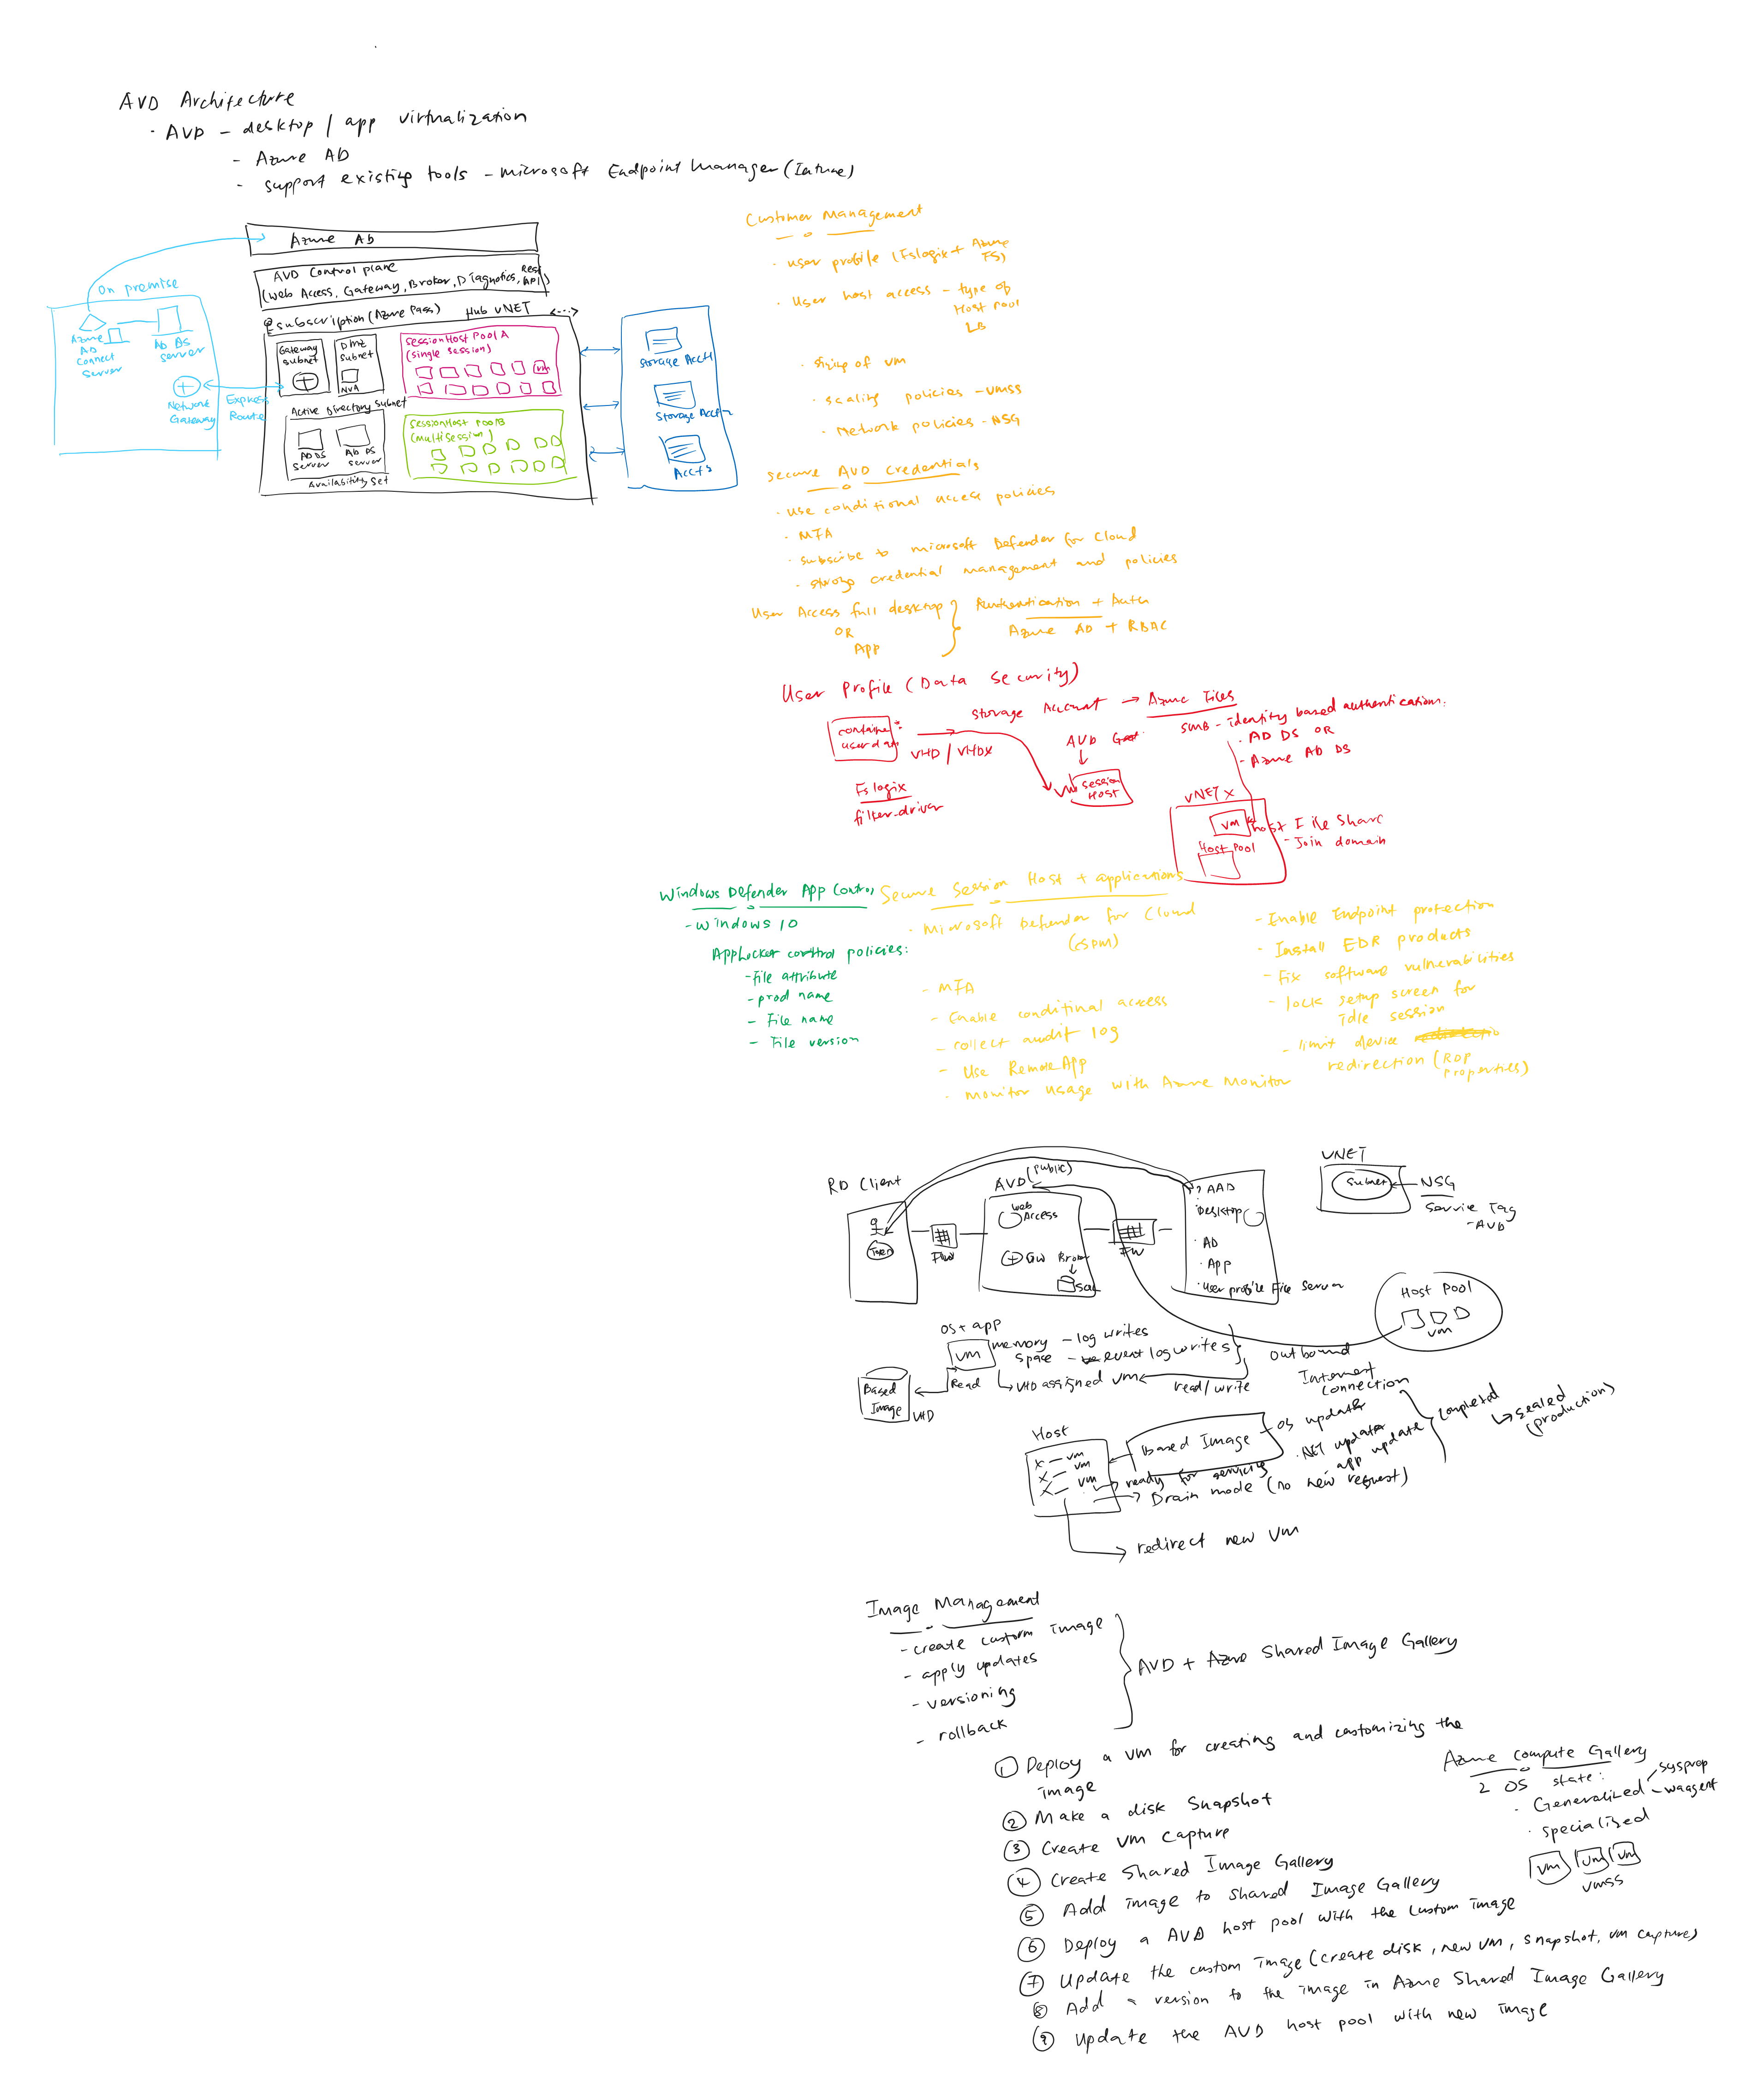 AVD Architecture
· AVD - desktop / app virtualization
- Azure AD
- support existing tools - microsoft Endpoint Manager (Intune)
Azure AD
AVD Control plane
(Web Access, Gateway, Broker, Diagnostics, Rest API)
subscription (Azure Pass) Hub VNET <--->
On premise
Azure AD Connect Server
AD DS Server
Network Gateway
Express Route
Gateway subnet
DMZ Subnet
NVA
SessionHost Pool A
(single session)
vm
Active Directory Subnet
ADDS Server
AD DS Server
Availability Set
SessionHost Pool B
(multi session)
Storage Acct1
Storage Acctn
Accts
Customer Management
· user profile (Fslogix + Azure FS)
· User host access - type of
Host Pool
LB
· sizing of vm
· scaling policies - VMSS
· Network policies - NSG
secure AVD credentials
· use conditional access policies
· MFA
· subscribe to microsoft Defender for Cloud
· strong credential management and policies
User Access full desktop
OR
App
Authentication + Auth
Azure AD + RBAC
User Profile (Data Security)
container user data
VHD / VHDX
Fslogix
filter-driver
Storage Account → Azure Files
SMB - identity based authentication.
· AD DS OR
- Azure AD DS
AVD
session HOST
VNET x
vm
host File Share
- Join domain
Host Pool
Windows Defender App Control
- windows 10
AppLocker control policies:
- file attribute
- prod name
- File name
- File version
Secure Session Host + applications
· Microsoft Defender for Cloud
(CSPM)
- MFA
- Enable conditinal access
- collect audit log
- Use RemoteApp
· monitor usage with Azure Monitor
- Enable Endpoint protection
- Install EDR products
- Fix software vulnerabilities
- lock setup screen for
idle session
- limit device
redirection (RDP properties)
RD Client
AVD (public)
web Access
GW
Broker
SQL
FW
AAD
· Desktop
· AD
· App
· User profile File Server
VNET
Subnet
NSG
Service Tag
- AVD
Host Pool
vm
outbound
Internet connection
OS + app
vm
memory space
- log writes
- event log writes
Read
VHD assigned vm
read/write
Based Image
VHD
Host
x - vm
x - vm
x - vm
Based Image
- OS update
· .NET update
- app update
completed
sealed
(production)
ready for servicing
Drain mode (no new request)
redirect new vm
Image Management
- create custom image
- apply updates
- versioning
- rollback
AVD + Azure Shared Image Gallery
① Deploy a vm for creating and customizing the
image
② Make a disk Snapshot
③ Create vm capture
④ Create Shared Image Gallery
⑤ Add image to Shared Image Gallery
⑥ Deploy a AVD host pool with the custom image
⑦ Update the custom image (create disk, new vm, snapshot, vm capture)
⑧ Add a version to the image in Azure Shared Image Gallery
⑨ update the AVD host pool with new image
Azure Compute Gallery
2 OS state:
· Generalized
sysprep
waagent
· specialized
vm vm vm
vmss